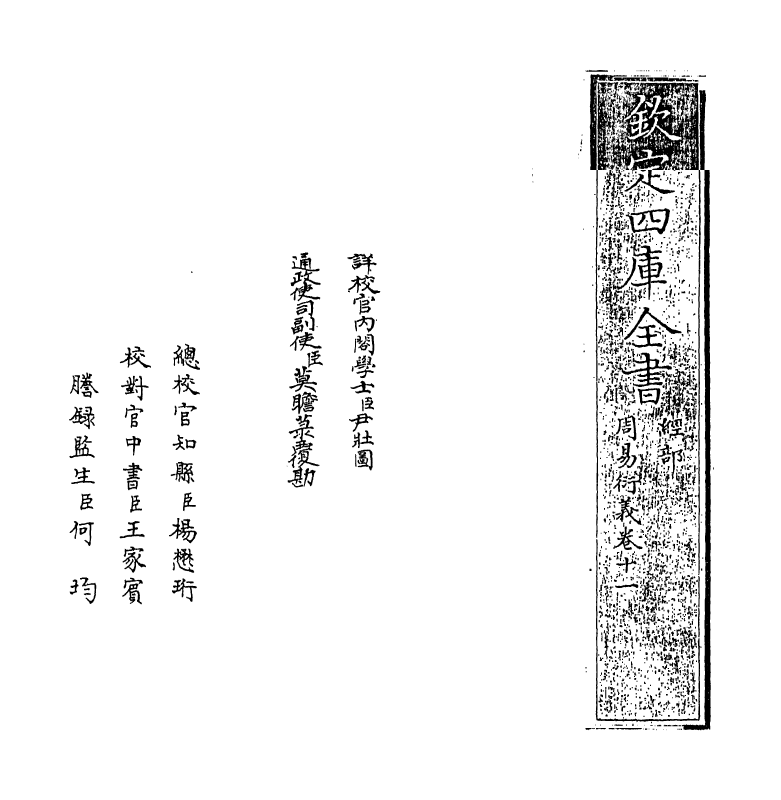 欽定四庫全書
經部
周易衍義卷十一
詳校官內閣學士臣尹壯圖
通政使司副使臣莫瞻菉覆勘
總校官知縣臣楊懋珩
校對官中書臣王家賓
謄錄監生臣何均